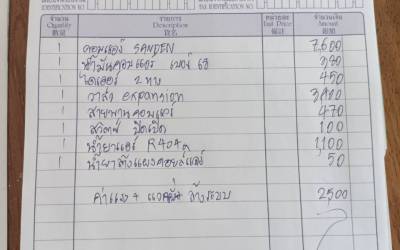 IDENTIFICATION NO.
TAX IDENTIFICATION NO.
จำนวน รายการ หน่วยละ จำนวนเงิน
Quantity Description Unit Price Amount
數量 貨名 單價 銀額
1 คอมแอร์ SANDEN 7,600
1 น้ำมันคอมแอร์ เบอร์ 68
1 ไดเออร์ 2 ทาง 450
1 วาล์ว expansion
1 สายพานคอมแอร์ 470
1 สวิตช์ ปิดเปิด 100
1 น้ำยาแอร์ R404 1,100
1 น้ำยาล้างแผงคอยล์แอร์ 50
ค่าแรง + แวคคั่ม ล้างระบบ 2500